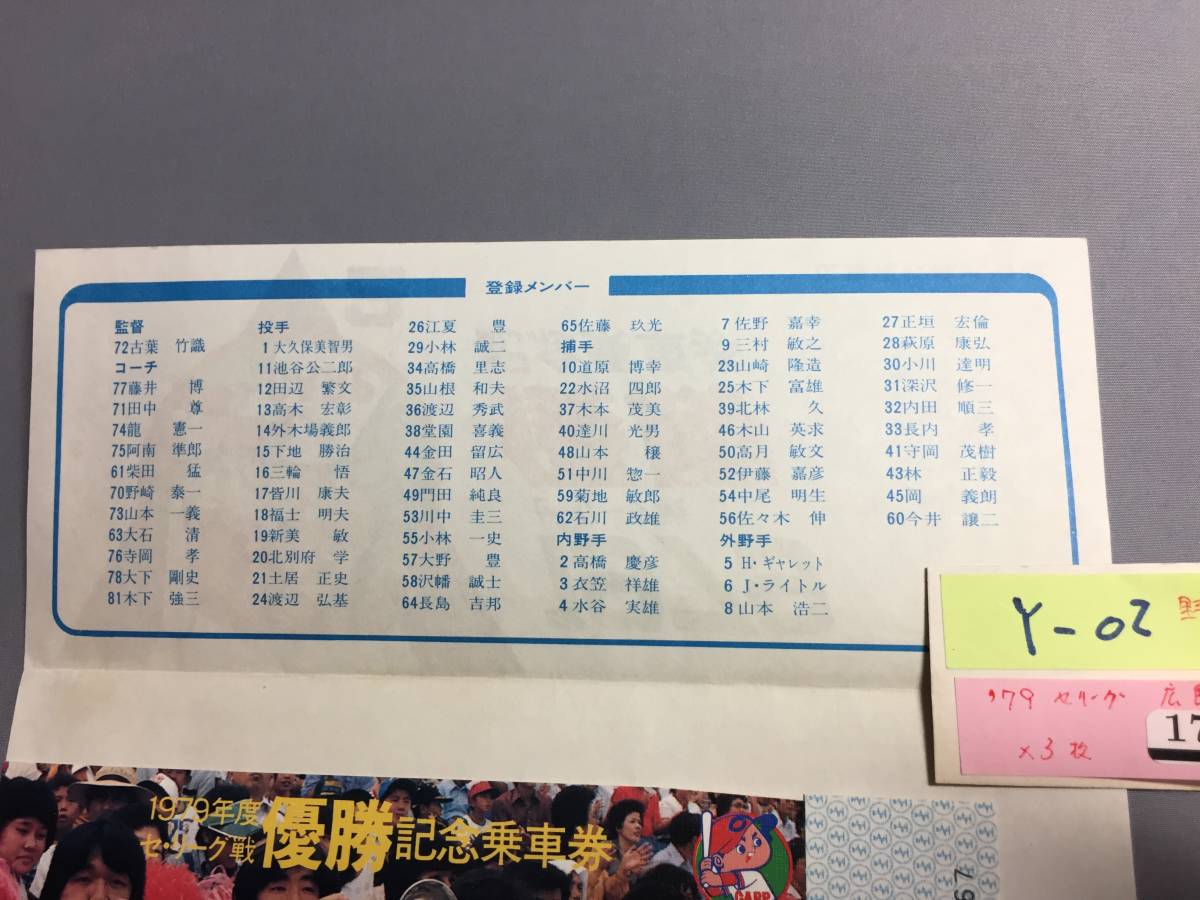 登録メンバー
監督
72古葉 竹識
コーチ
77藤井 博
71田中 尊
74龍 憲一
75阿南 準郎
61柴田 猛
70野崎 泰一
73山本 一義
63大石 清
76寺岡 孝
78大下 剛史
81木下 強三
投手
1大久保美智男
11池谷公二郎
12田辺 繁文
13高木 宏彰
14外木場義郎
15下地 勝治
16三輪 悟
17皆川 康夫
18福士 明夫
19新美 敏
20北別府 学
21土居 正史
24渡辺 弘基
26江夏 豊
29小林 誠二
34高橋 里志
35山根 和夫
36渡辺 秀武
38堂園 喜義
44金田 留広
47金石 昭人
49門田 純良
53川中 圭三
55小林 一史
57大野 豊
58沢幡 誠士
64長島 吉邦
65佐藤 玖光
捕手
10道原 博幸
22水沼 四郎
37木本 茂美
40達川 光男
48山本 穣
51中川 惣一
59菊地 敏郎
62石川 政雄
内野手
2高橋 慶彦
3衣笠 祥雄
4水谷 実雄
7佐野 嘉幸
9三村 敏之
23山崎 隆造
25木下 富雄
39北林 久
46木山 英求
50高月 敏文
52伊藤 嘉彦
54中尾 明生
56佐々木 伸
外野手
5H・ギャレット
6J・ライトル
8山本 浩二
27正垣 宏倫
28萩原 康弘
30小川 達明
31深沢 修一
32内田 順三
33長内 孝
41守岡 茂樹
43林 正毅
45岡 義朗
60今井 譲二
Y-02
'79 セリーグ 広
×3枚
17
1979年度
セ・リーグ戦
優勝記念乗車券
CARP
67